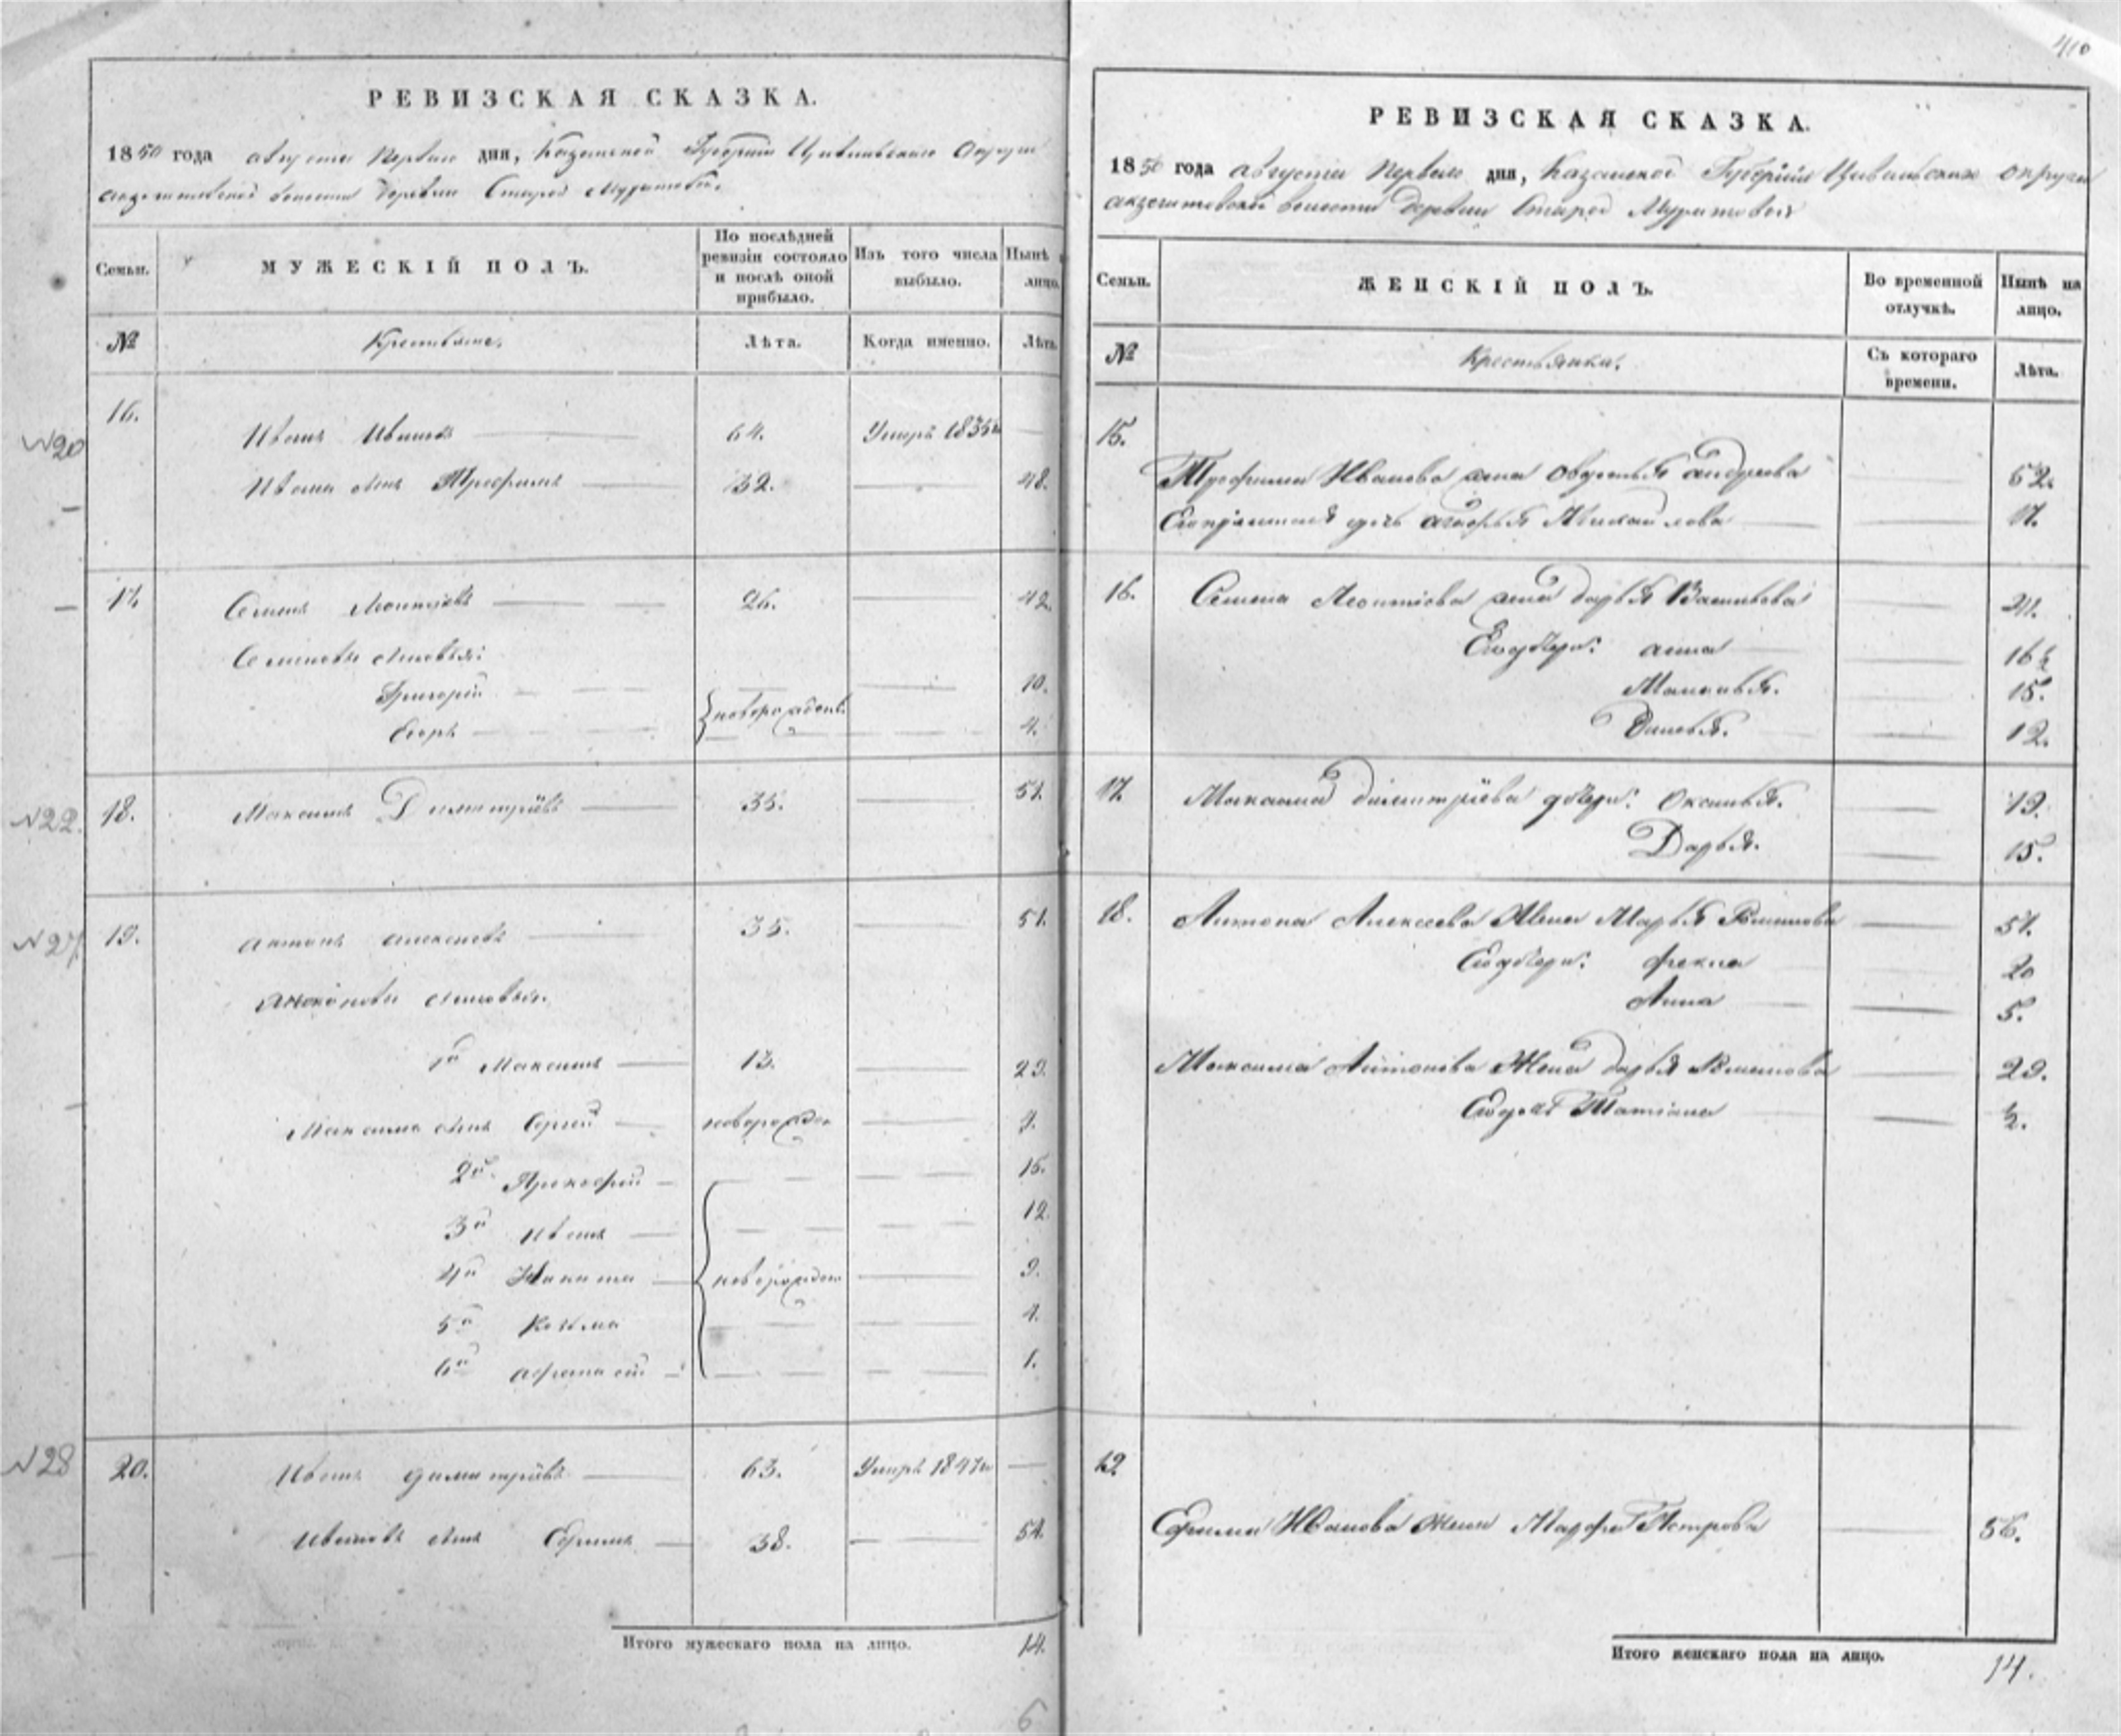 РЕВИЗСКАЯ СКАЗКА.
1850 года августа первого дня, Казанской Губернии Цивильского Округа
волости деревни Старой Муратовой.
Семьи.
МУЖЕСКІЙ ПОЛЪ.
По послѣдней ревизіи состояло и послѣ оной прибыло.
Изъ того числа выбыло.
Нынѣ лицо.
№
Крестьяне.
Лѣта.
Когда именно.
Лѣта.
№20
16.
Иванъ Ивановъ
64.
Умеръ 1835
Ивана сынъ Трофимъ
32.
48.
17.
Семенъ Леонтьевъ
26.
42.
Семеновы сыновья:
Григорій
новорожден.
10.
Егоръ
4.
№22.
18.
Максимъ Димитріевъ
35.
51.
№27
19.
Антонъ Алексеевъ
35.
51.
Антоновы сыновья.
1й Максимъ
13.
29.
Максима сынъ Сергей
новорожден
2й Прокофій
15.
3й Иванъ
12.
4й Никита
новорожден
9.
5й Козьма
4.
6й Афанасій
1.
№28
20.
Иванъ Димитріевъ
63.
Умеръ 1847
Ивановъ сынъ Ефимъ
38.
54.
Итого мужескаго пола на лицо.
14.
6
410
РЕВИЗСКАЯ СКАЗКА.
1850 года августа первого дня, Казанской Губерніи Цивильскаго округа
волости деревни Старой Муратовой
Семьи.
ЖЕНСКІЙ ПОЛЪ.
Во временной отлучкѣ.
Нынѣ на лицо.
№
Крестьянки.
Съ котораго времени.
Лѣта.
15.
Трофима Иванова жена Овдотья Андреева
52.
дочь Михайлова
17.
16.
Семена Леонтіева жена Дарья Васильева
41.
Его дочери: Анна
16½
Маланья.
15.
12.
17.
Максима Димитріева дочери: Оксинья.
19.
Дарья.
15.
18.
Антона Алексеева Жена Марья Романова
51.
Его дочери: Фекла
20
Анна
5.
Максима Антонова Жена Дарья Романова
29.
Его дочь Татіана
½.
19
Ефима Иванова жена Марфа Петрова
56.
Итого женскаго пола на лицо.
14.